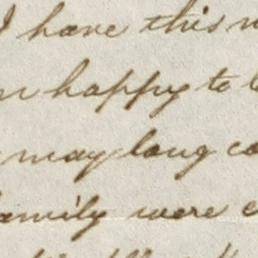 I have this
happy to
may long
family were